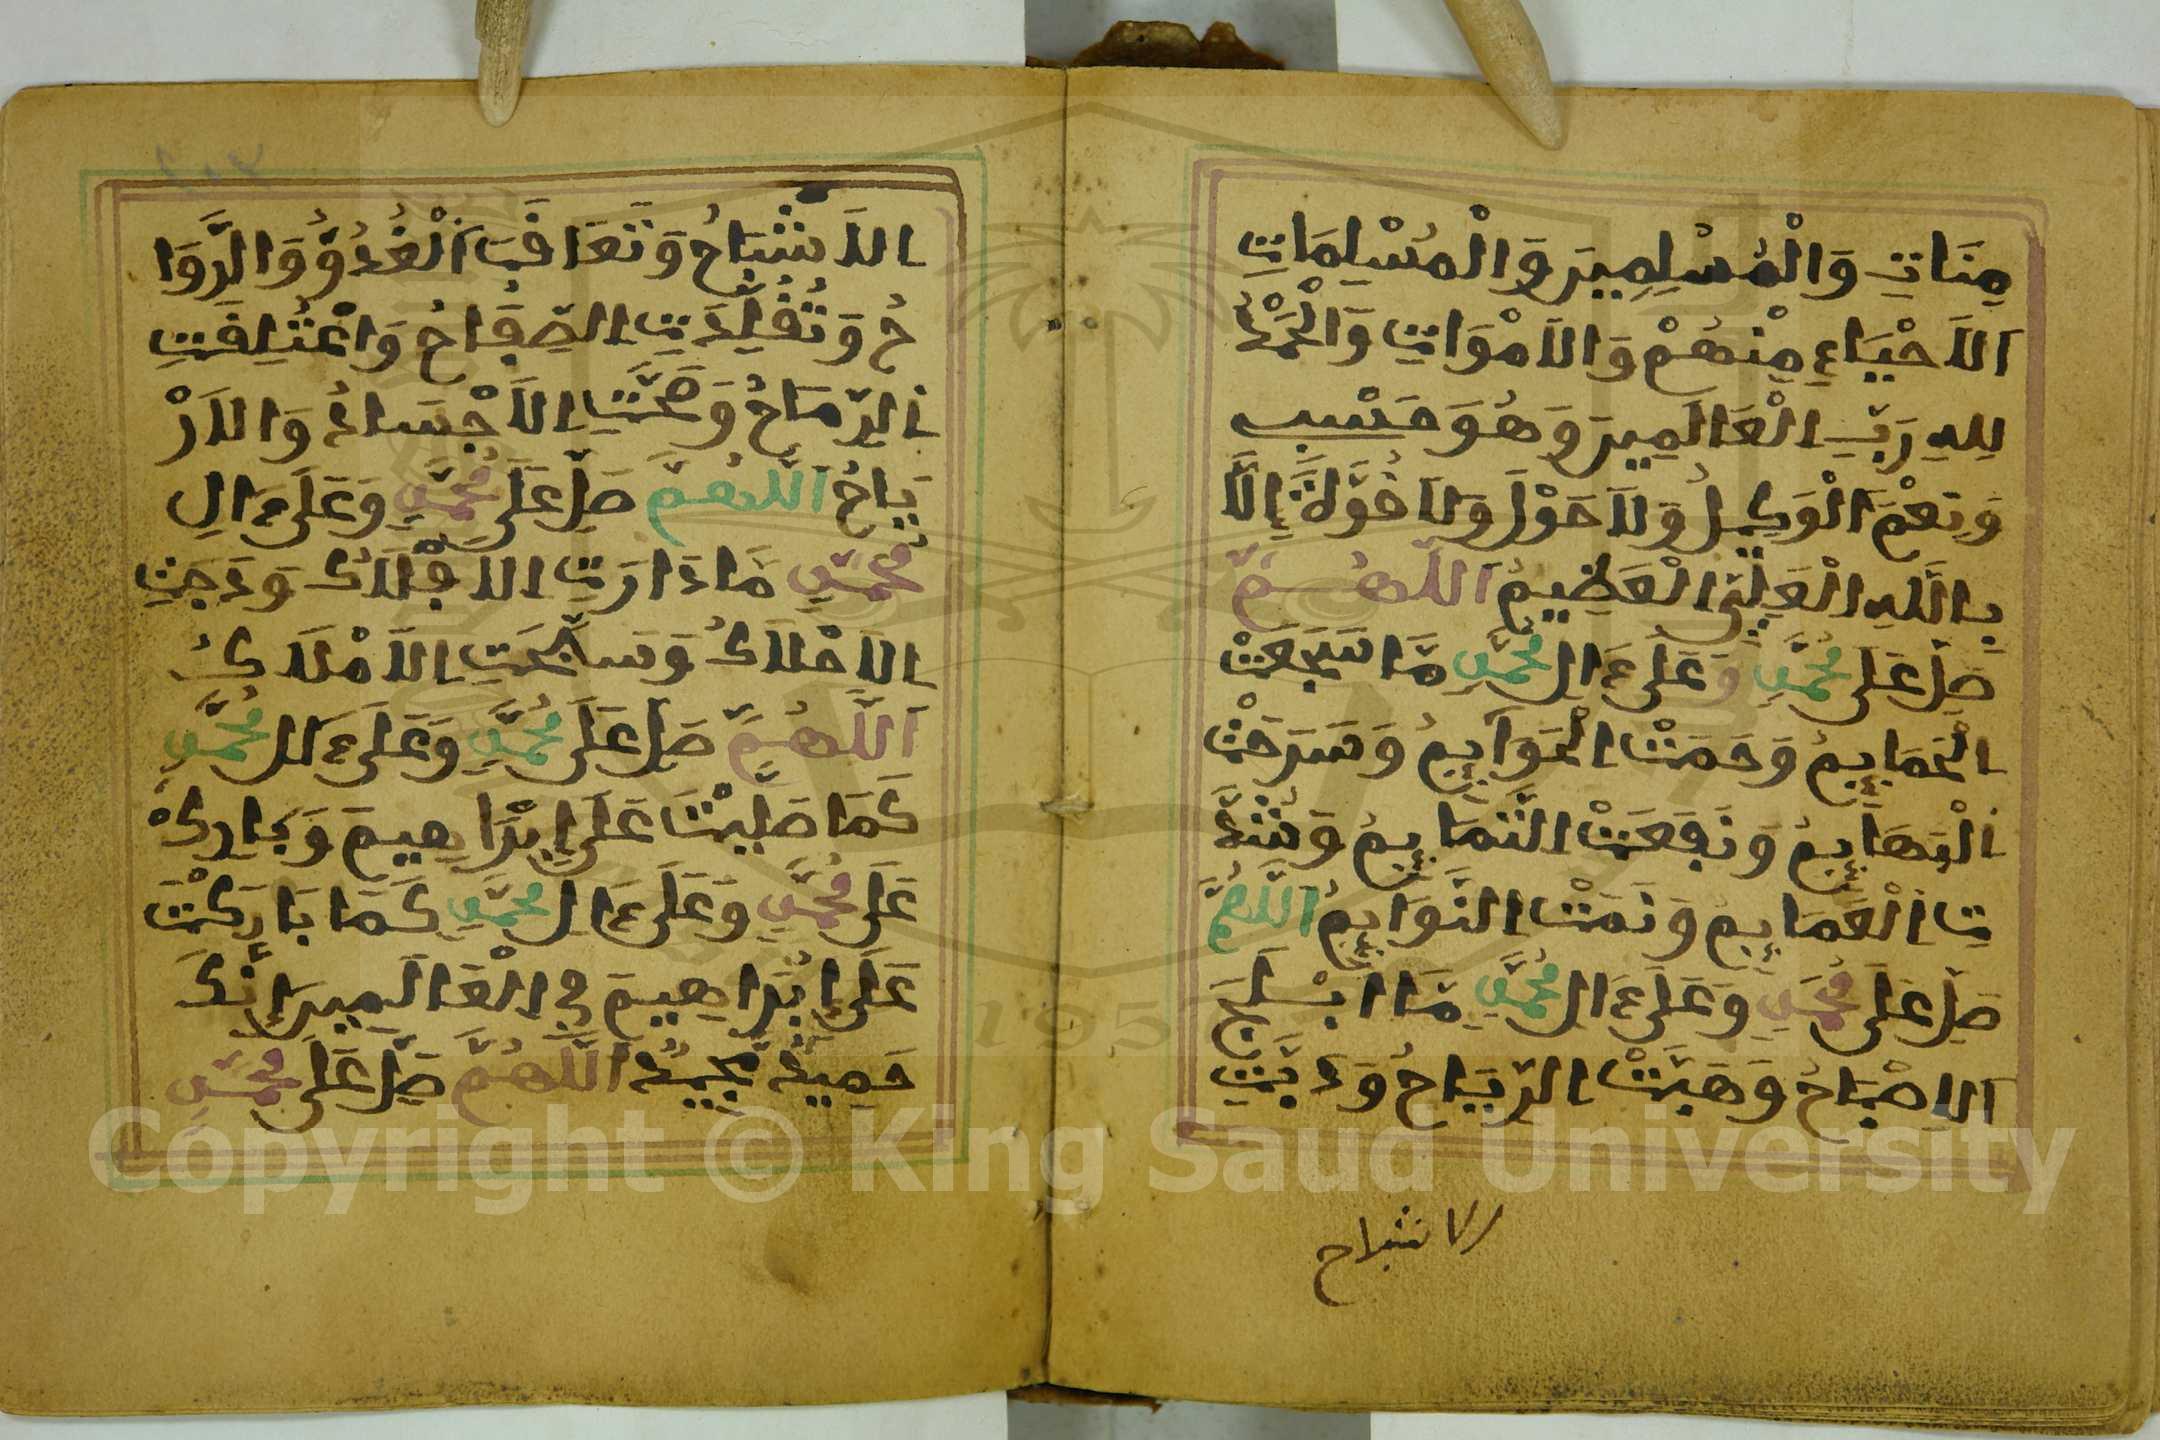 مِنَاتِ وَالْمُسْلِمِينَ وَالْمُسْلِمَاتِ
اَلاَحْيَاءِ مِنْهُمْ وَالاَمْوَاتِ وَالْحَمْدُ
لِلهِ رَبِّ الْعَالَمِينَ وَهُوَ حَسْبِي
وَنِعْمَ الْوَكِيلُ وَلاَ حَوْلَ وَلاَ قُوَّةَ إِلَّا
بِاللَّهِ الْعَلِيِّ الْعَظِيمِ اَللَّهُمَّ
صَلِّ عَلَى مُحَمَّدٍ وَعَلَى ءَالِ مُحَمَّدٍ مَّا سَجَعَتْ
الْحَمَايِمُ وَحَمَتْ الْحَوَايِمُ وَسَرَحَتْ
اِلْبَهَايِمُ وَنَفَعَتْ التَّمَايِمُ وَشُدَّ
تِ اِلْعَمَايِمُ وَنَمَتْ النَّوَايِمُ اَللَّهُمَّ
صَلِّ عَلَى مُحَمَّدٍ وَعَلَى ءَالِ مُحَمَّدٍ مَّا اَبْلَجَ
اَلاِصْبَاحُ وَهَبَّتْ الرِّيَاحُ وَدَبَّتِ
الاشباح
اِلاَشْبَاحُ وَتَعَاقَبَ اَلْغُدُوُّ وَالرَّوَا
حُ وَتُقُلِّدَتِ الصِّفَاحُ وَاعْتُقِلَتِ
اِلرِّمَاحُ وَصَحَّتِ اِلاَجْسَادُ وَالاَرْ
وَاحُ اَللَّهُمَّ صَلِّ عَلَى مُحَمَّدٍ وَعَلَى ءَالِ
مُحَمَّدٍ مَا دَارَتِ الاَفْلاَكُ وَدَجَتِ
اِلاَحْلاَكُ وَسَبَّحَتِ اِلاَمْلاَكُ
اَللَّهُمَّ صَلِّ عَلَى مُحَمَّدٍ وَعَلَى ءَالِ مُحَمَّدٍ
كَمَا صَلَّيْتَ عَلَى إِبْرَاهِيمَ وَبَارِكْ
عَلَى مُحَمَّدٍ وَعَلَى ءَالِ مُحَمَّدٍ كَمَا بَارَكْتَ
عَلَى إِبْرَاهِيمَ فِي الْعَالَمِينَ إِنَّكَ
حَمِيدٌ مَّجِيدٌ اَللَّهُمَّ صَلِّ عَلَى مُحَمَّدٍ
Copyright © King Saud University
1957